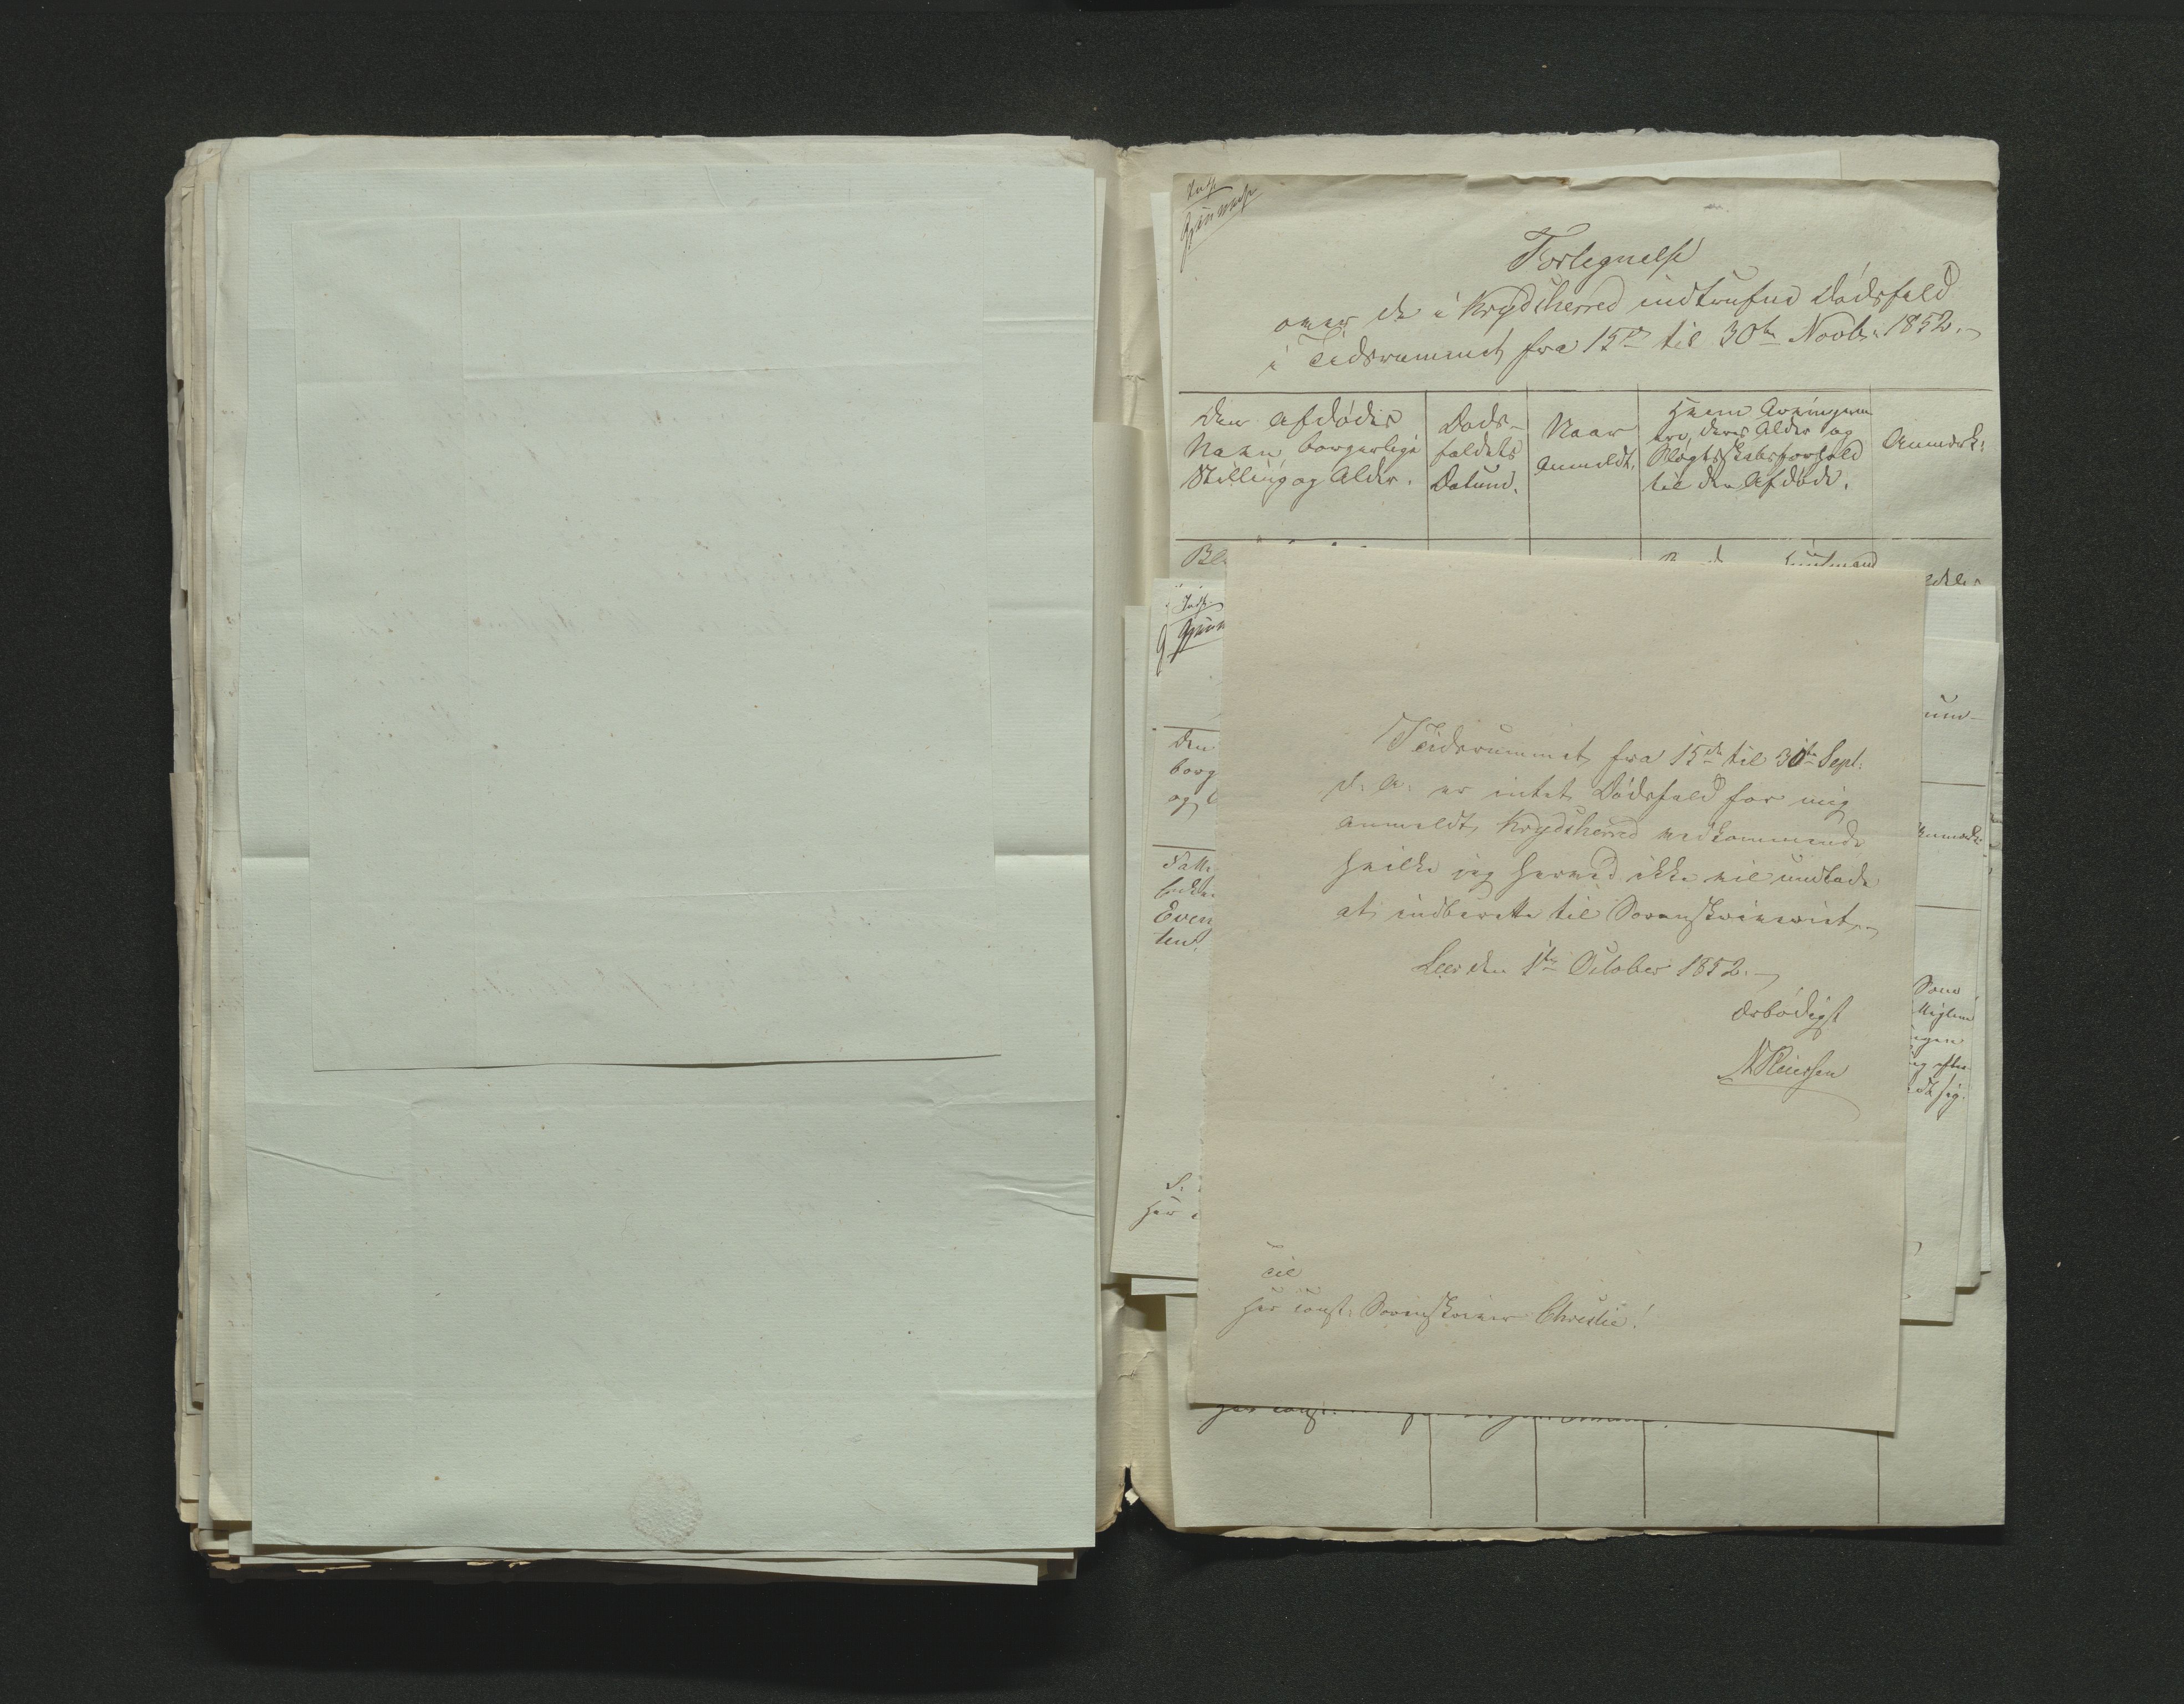 Indf.
Fortegnelse
over de i Krydsherred indtrufne Dødsfald
i Tidsrummet fra 15de til 30te Novbr: 1852.
Den Afdødes
Navn, borgerlige
Stilling og Alder.
Døds-
faldets
Datum.
Naar
Anmeldt.
Hvem Arvingerne
ere, deres Alder og
Slægtskabsforhold
til den Afdøde.
Anmærk:
Tidsrummet fra 15de til 30te Sept:
d: A: er intet Dødsfald for mig
anmeldt, Krydsherred vedkommende
hvilke jeg herved ikke vil undlade
at indberette til Sorenskriveriet.
Leer den 1te October 1852.
Ærbødigst
Til
Hr const: Sorenskriver Christie!
Den
borg
og
Even
ten.
Hr